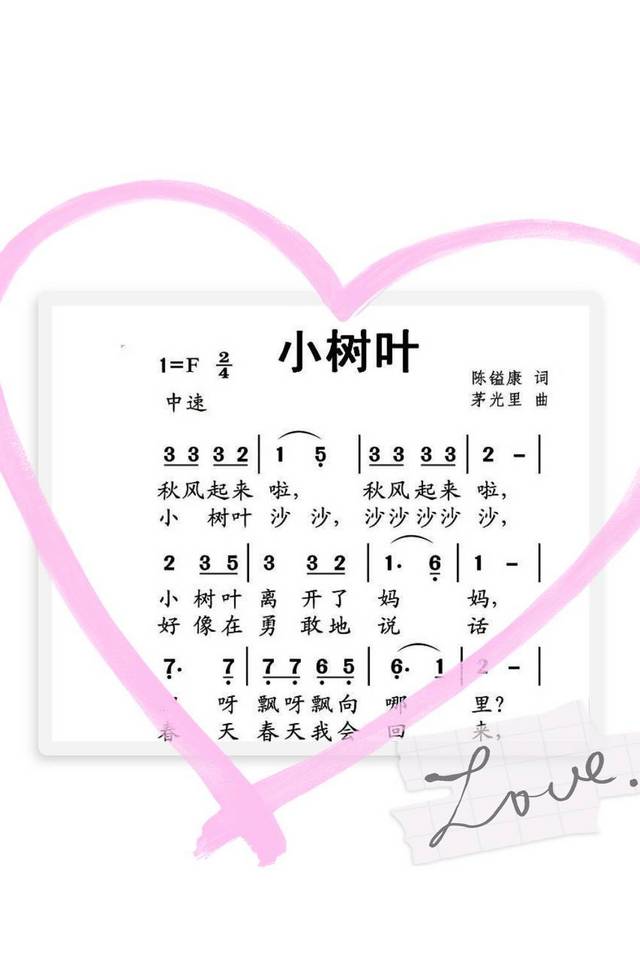 小树叶
1=F 2/4
陈镒康 词
中速
茅光里 曲
3 3 3 2 | 1 5 | 3 3 3 3 | 2 - |
秋风起来 啦, 秋风起来 啦,
小 树叶 沙 沙, 沙沙沙沙 沙,
2 3 5 | 3 3 2 | 1. 6 | 1 - |
小 树叶 离 开了 妈 妈,
好 像在 勇 敢地 说 话
7. 7 | 7 7 6 5 | 6. 1 | 2 - |
呀 飘呀飘向 哪 里?
春 天 春天我会 回 来,
Love.